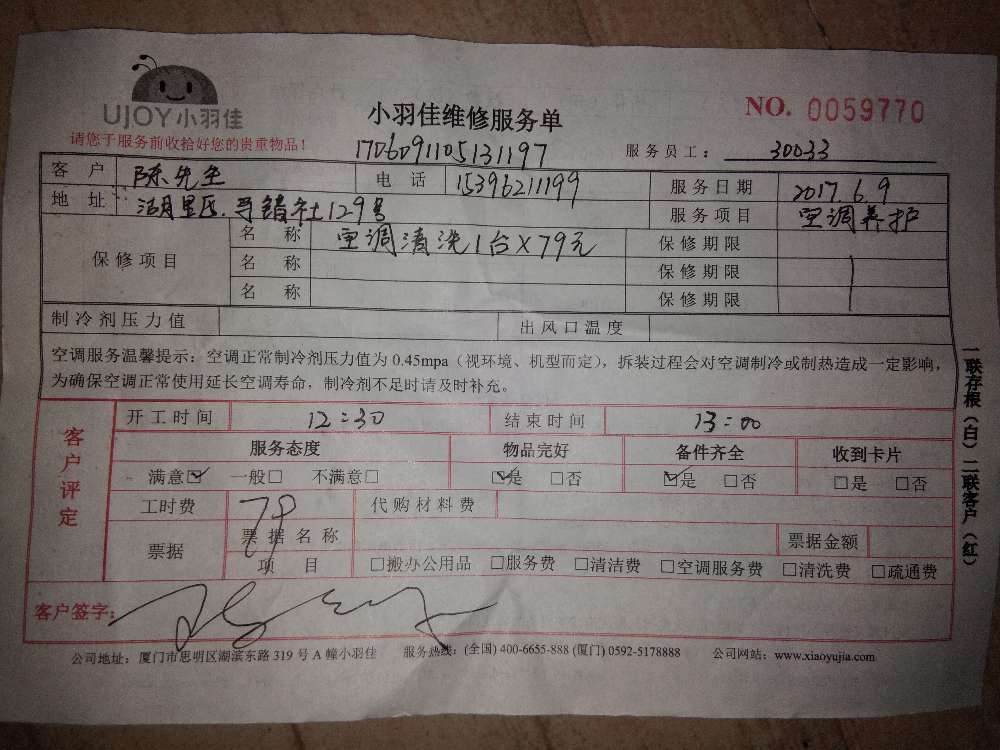 UJOY小羽佳
小羽佳维修服务单
NO. 0059770
请您于服务前收拾好您的贵重物品！
1706091105131197
服务员工： 30033
客户 陈先生 电话 15396211199 服务日期 2017.6.9
地址 湖里区 129号 服务项目 空调养护
保修项目 名称 空调清洗1台X79元 保修期限
名称 保修期限
名称 保修期限
制冷剂压力值 出风口温度
空调服务温馨提示：空调正常制冷剂压力值为 0.45mpa（视环境、机型而定），拆装过程会对空调制冷或制热造成一定影响，
为确保空调正常使用延长空调寿命，制冷剂不足时请及时补充。
一联存根（白）二联客户（红）
客户评定
开工时间 12:30 结束时间 13:00
服务态度 物品完好 备件齐全 收到卡片
满意☑ 一般□ 不满意□ ☑是 □否 ☑是 □否 □是 □否
工时费 79 代购材料费
票据 票据名称 票据金额
项目 □搬办公用品 □服务费 □清洁费 □空调服务费 □清洗费 □疏通费
客户签字：
公司地址：厦门市思明区湖滨东路 319 号 A 幢小羽佳 服务热线：(全国) 400-6655-888 (厦门) 0592-5178888 公司网站：www.xiaoyujia.com